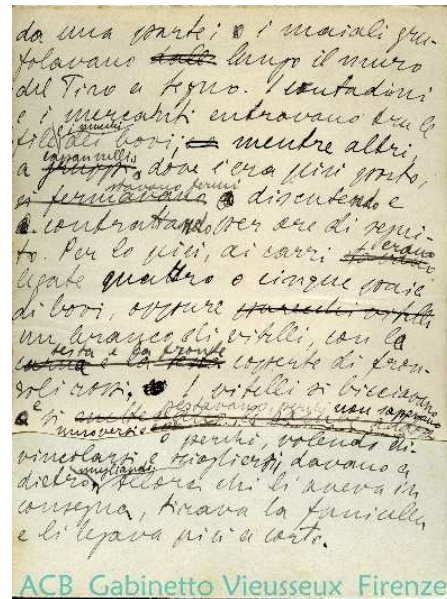 da una parte; e i maiali gru-
folavano dall lungo il muro
del Tiro a segno. I contadini
e i mercanti entravano tra le
file dei bovi, mentre altri,
a gruppi capannelli, dove c'era più posto,
si fermavano stavano fermi a discutendo e
a contrattando per ore di segui-
to. Per lo più, ai carri erano
legate quattro o cinque paia
di bovi, oppure parecchi vitelli
un branco di vitelli, con la
testa e la fronte coperte di fron-
zoli rossi. I vitelli si
e si non sapevano
muoversi
o perché, volendo di-
vincolarsi e sciogliersi, davano a
dietro, mugliando; allora chi li aveva in
consegna, tirava la funicella
e li legava più a corto.
ACB Gabinetto Vieusseux Firenze